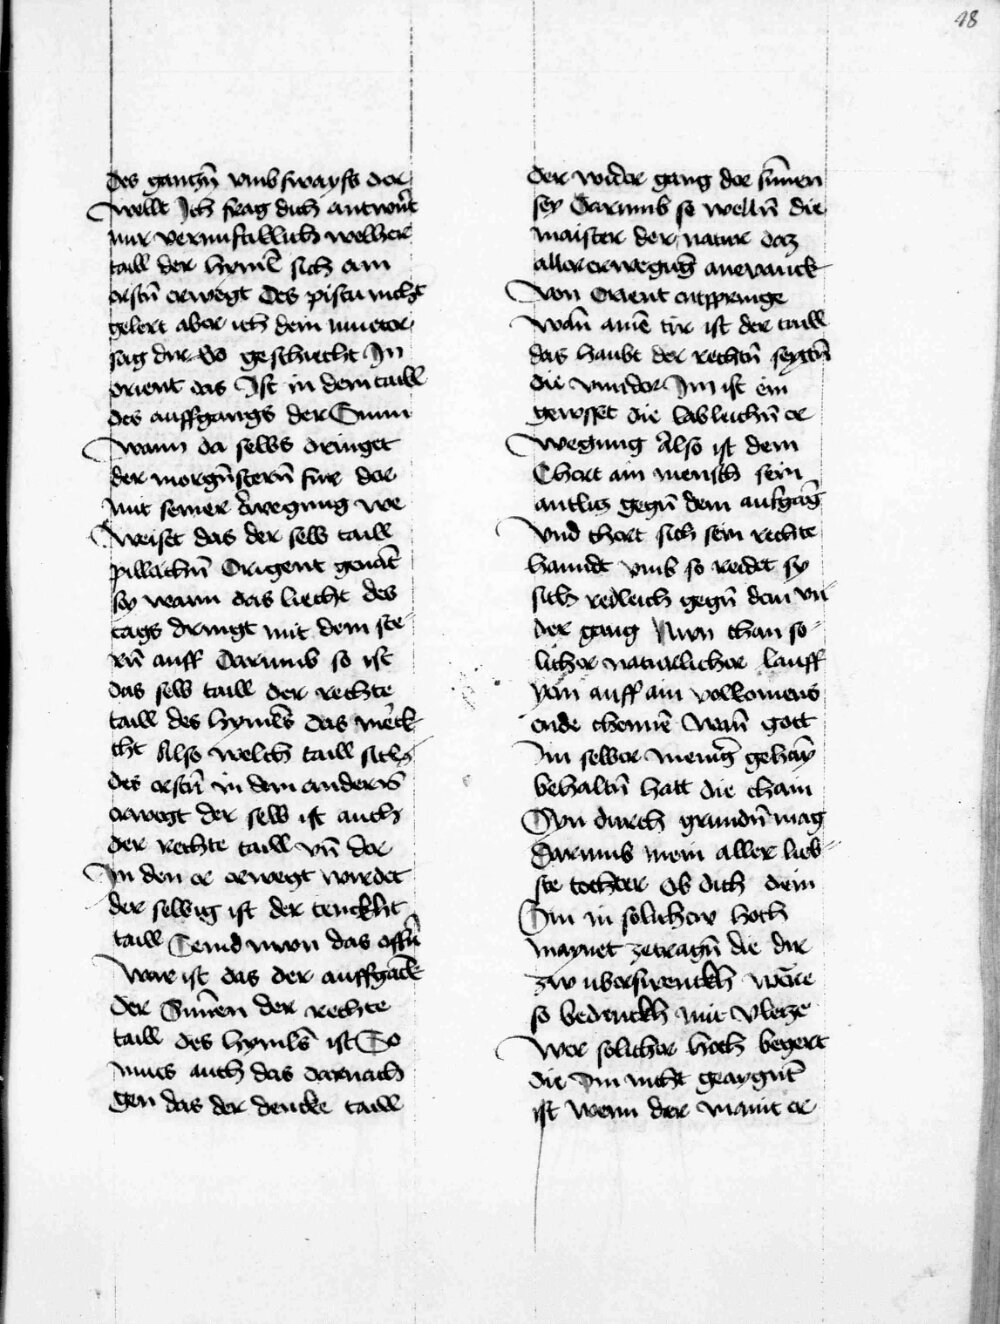 48
des ganczn̄ vmbswayfs der
wellt Ich frag dich antwurt
mir vernuftiklich welher
taill der hymel̄ sich am
erstn̄ erwegt Des pistu nicht
gelert aber ich dein mueter
sag dir Do geschiecht In
orient das Ist in dem taill
des auffgangs der Sunn
wann da selbs dringet
der morgn̄stern̄ fur der
mit seiner erwegung we
weiset das der selb taill
pillichn̄ Origent genāt
sey wann das liecht des
tags dringt mit dem ste
rn̄ auff Darumb so ist
das selb taill der rechte
taill des hymels̄ das merck
cht Also welch taill sich
des erstn̄ in dem anders̄
erwegt der selb ist auch
der rechte taill vn̄ der
In den er erwegt wirdet
der selbig ist der tenckht
taill Seind nun das offn̄
war ist das der auffgāck
der Sunn̄en der rechte
taill des hymels̄ ist So
mues auch das darnach
gen das der dencke taill
der wider gang der sun̄en
sey Darumb so welln̄ die
maister der natur daz
aller erwegunḡ anevanck
von Orient entspringe
wan̄ ainē tir ist der taill
das haubt der rechtn̄ seytn̄
die vnnder Im ist ein
gewsset die lableichn̄ er
wegung Also ist dem
Chert ain mensch sein
antlicz gegn̄ dem aufgāg
vnd chert sich sein rechte
hanndt vmb so reidet sy
sich redleich gegn̄ dem vn̄
der gang Nun chan so
licher naturlicher lauff
von auff ain volkomens
ende chomen̄ wan̄ gott
Im selber meniḡ gehaÿ
behaltn̄ hatt die chain
Syn durch grundn̄ mag
Darumb mein aller lieb
ste tochter Ob dich dein
Sin in solicher hoch
maynet zetragn̄ die dir
zw vberswenckh̄ wēre
so bedenckh̄ mit vleize
wer solicher hoch begert
die Im nicht geaygnt̄
ist wenn der maint er